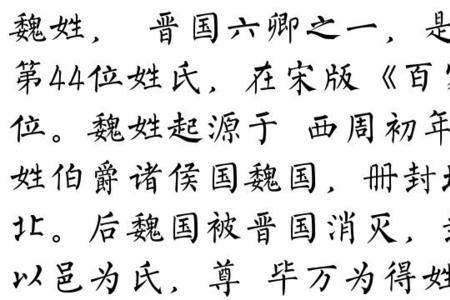 魏姓， 晋国六卿之一，是
第44位姓氏，在宋版《百
位。魏姓起源于 西周初年
姓伯爵诸侯国魏国，册封
北。后魏国被晋国消灭，
以邑为氏，尊 毕万为得姓